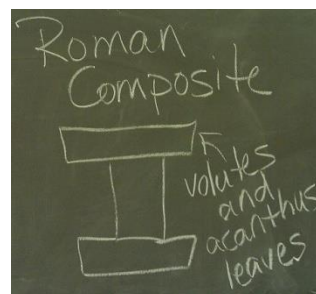 Roman
Composite
volutes
and
acanthus
leaves